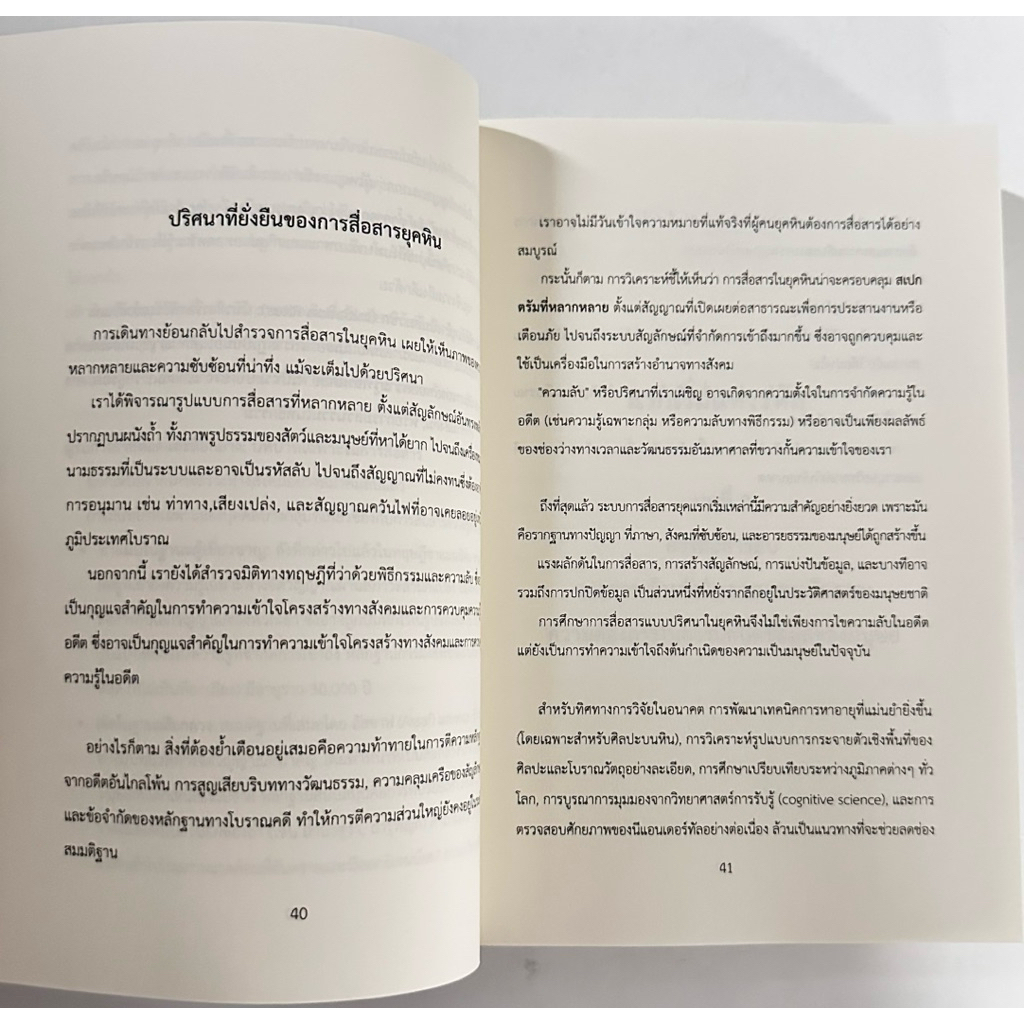 ปริศนาที่ยั่งยืนของการสื่อสารยุคหิน
การเดินทางย้อนกลับไปสำรวจการสื่อสารในยุคหิน เผยให้เห็นภาพของ
หลากหลายและความซับซ้อนที่น่าทึ่ง แม้จะเต็มไปด้วยปริศนา
เราได้พิจารณารูปแบบการสื่อสารที่หลากหลาย ตั้งแต่สัญลักษณ์
ปรากฏบนผนังถ้ำ ทั้งภาพรูปธรรมของสัตว์และมนุษย์ที่หาได้ยาก ไปจนถึง
นามธรรมที่เป็นระบบและอาจเป็นรหัสลับ ไปจนถึงสัญญาณที่ไม่คงทนซึ่ง
การอนุมาน เช่น ท่าทาง,เสียงเปล่ง, และสัญญาณควันไฟที่อาจเคย
ภูมิประเทศโบราณ
นอกจากนี้ เรายังได้สำรวจมิติทางทฤษฎีที่ว่าด้วยพิธีกรรมและความลับ
เป็นกุญแจสำคัญในการทำความเข้าใจโครงสร้างทางสังคมและการควบคุม
อดีต ซึ่งอาจเป็นกุญแจสำคัญในการทำความเข้าใจโครงสร้างทางสังคมและ
ความรู้ในอดีต
อย่างไรก็ตาม สิ่งที่ต้องย้ำเตือนอยู่เสมอคือความท้าทายในการตีความ
จากอดีตอันไกลโพ้น การสูญเสียบริบททางวัฒนธรรม, ความคลุมเครือของ
และข้อจำกัดของหลักฐานทางโบราณคดี ทำให้การตีความส่วนใหญ่ยังคงอยู่
สมมติฐาน
40
เราอาจไม่มีวันเข้าใจความหมายที่แท้จริงที่ผู้คนยุคหินต้องการสื่อสารได้อย่าง
สมบูรณ์
กระนั้นก็ตาม การวิเคราะห์ชี้ให้เห็นว่า การสื่อสารในยุคหินน่าจะครอบคลุม สเปก
ตรัมที่หลากหลาย ตั้งแต่สัญญาณที่เปิดเผยต่อสาธารณะเพื่อการประสานงานหรือ
เตือนภัย ไปจนถึงระบบสัญลักษณ์ที่จำกัดการเข้าถึงมากขึ้น ซึ่งอาจถูกควบคุมและ
ใช้เป็นเครื่องมือในการสร้างอำนาจทางสังคม
"ความลับ" หรือปริศนาที่เราเผชิญ อาจเกิดจากความตั้งใจในการจำกัดความรู้ใน
อดีต (เช่นความรู้เฉพาะกลุ่ม หรือความลับทางพิธีกรรม) หรืออาจเป็นเพียงผลลัพธ์
ของช่องว่างทางเวลาและวัฒนธรรมอันมหาศาลที่ขวางกั้นความเข้าใจของเรา
ถึงที่สุดแล้ว ระบบการสื่อสารยุคแรกเริ่มเหล่านี้มีความสำคัญอย่างยิ่งยวด เพราะมัน
คือรากฐานทางปัญญา ที่ภาษา, สังคมที่ซับซ้อน, และอารยธรรมของมนุษย์ได้ถูกสร้างขึ้น
แรงผลักดันในการสื่อสาร, การสร้างสัญลักษณ์, การแบ่งปันข้อมูล, และบางทีอาจ
รวมถึงการปกปิดข้อมูล เป็นส่วนหนึ่งที่หยั่งรากลึกอยู่ในประวัติศาสตร์ของมนุษยชาติ
การศึกษาการสื่อสารแบบปริศนาในยุคหินจึงไม่ใช่เพียงการไขความลับในอดีต
แต่ยังเป็นการทำความเข้าใจถึงต้นกำเนิดของความเป็นมนุษย์ในปัจจุบัน
สำหรับทิศทางการวิจัยในอนาคต การพัฒนาเทคนิคการหาอายุที่แม่นยำยิ่งขึ้น
(โดยเฉพาะสำหรับศิลปะบนหิน), การวิเคราะห์รูปแบบการกระจายตัวเชิงพื้นที่ของ
ศิลปะและโบราณวัตถุอย่างละเอียด, การศึกษาเปรียบเทียบระหว่างภูมิภาคต่างๆ ทั่ว
โลก, การบูรณาการมุมมองจากวิทยาศาสตร์การรับรู้ (cognitive science), และการ
ตรวจสอบศักยภาพของนีแอนเดอร์ทัลอย่างต่อเนื่อง ล้วนเป็นแนวทางที่จะช่วยลดช่อง
41